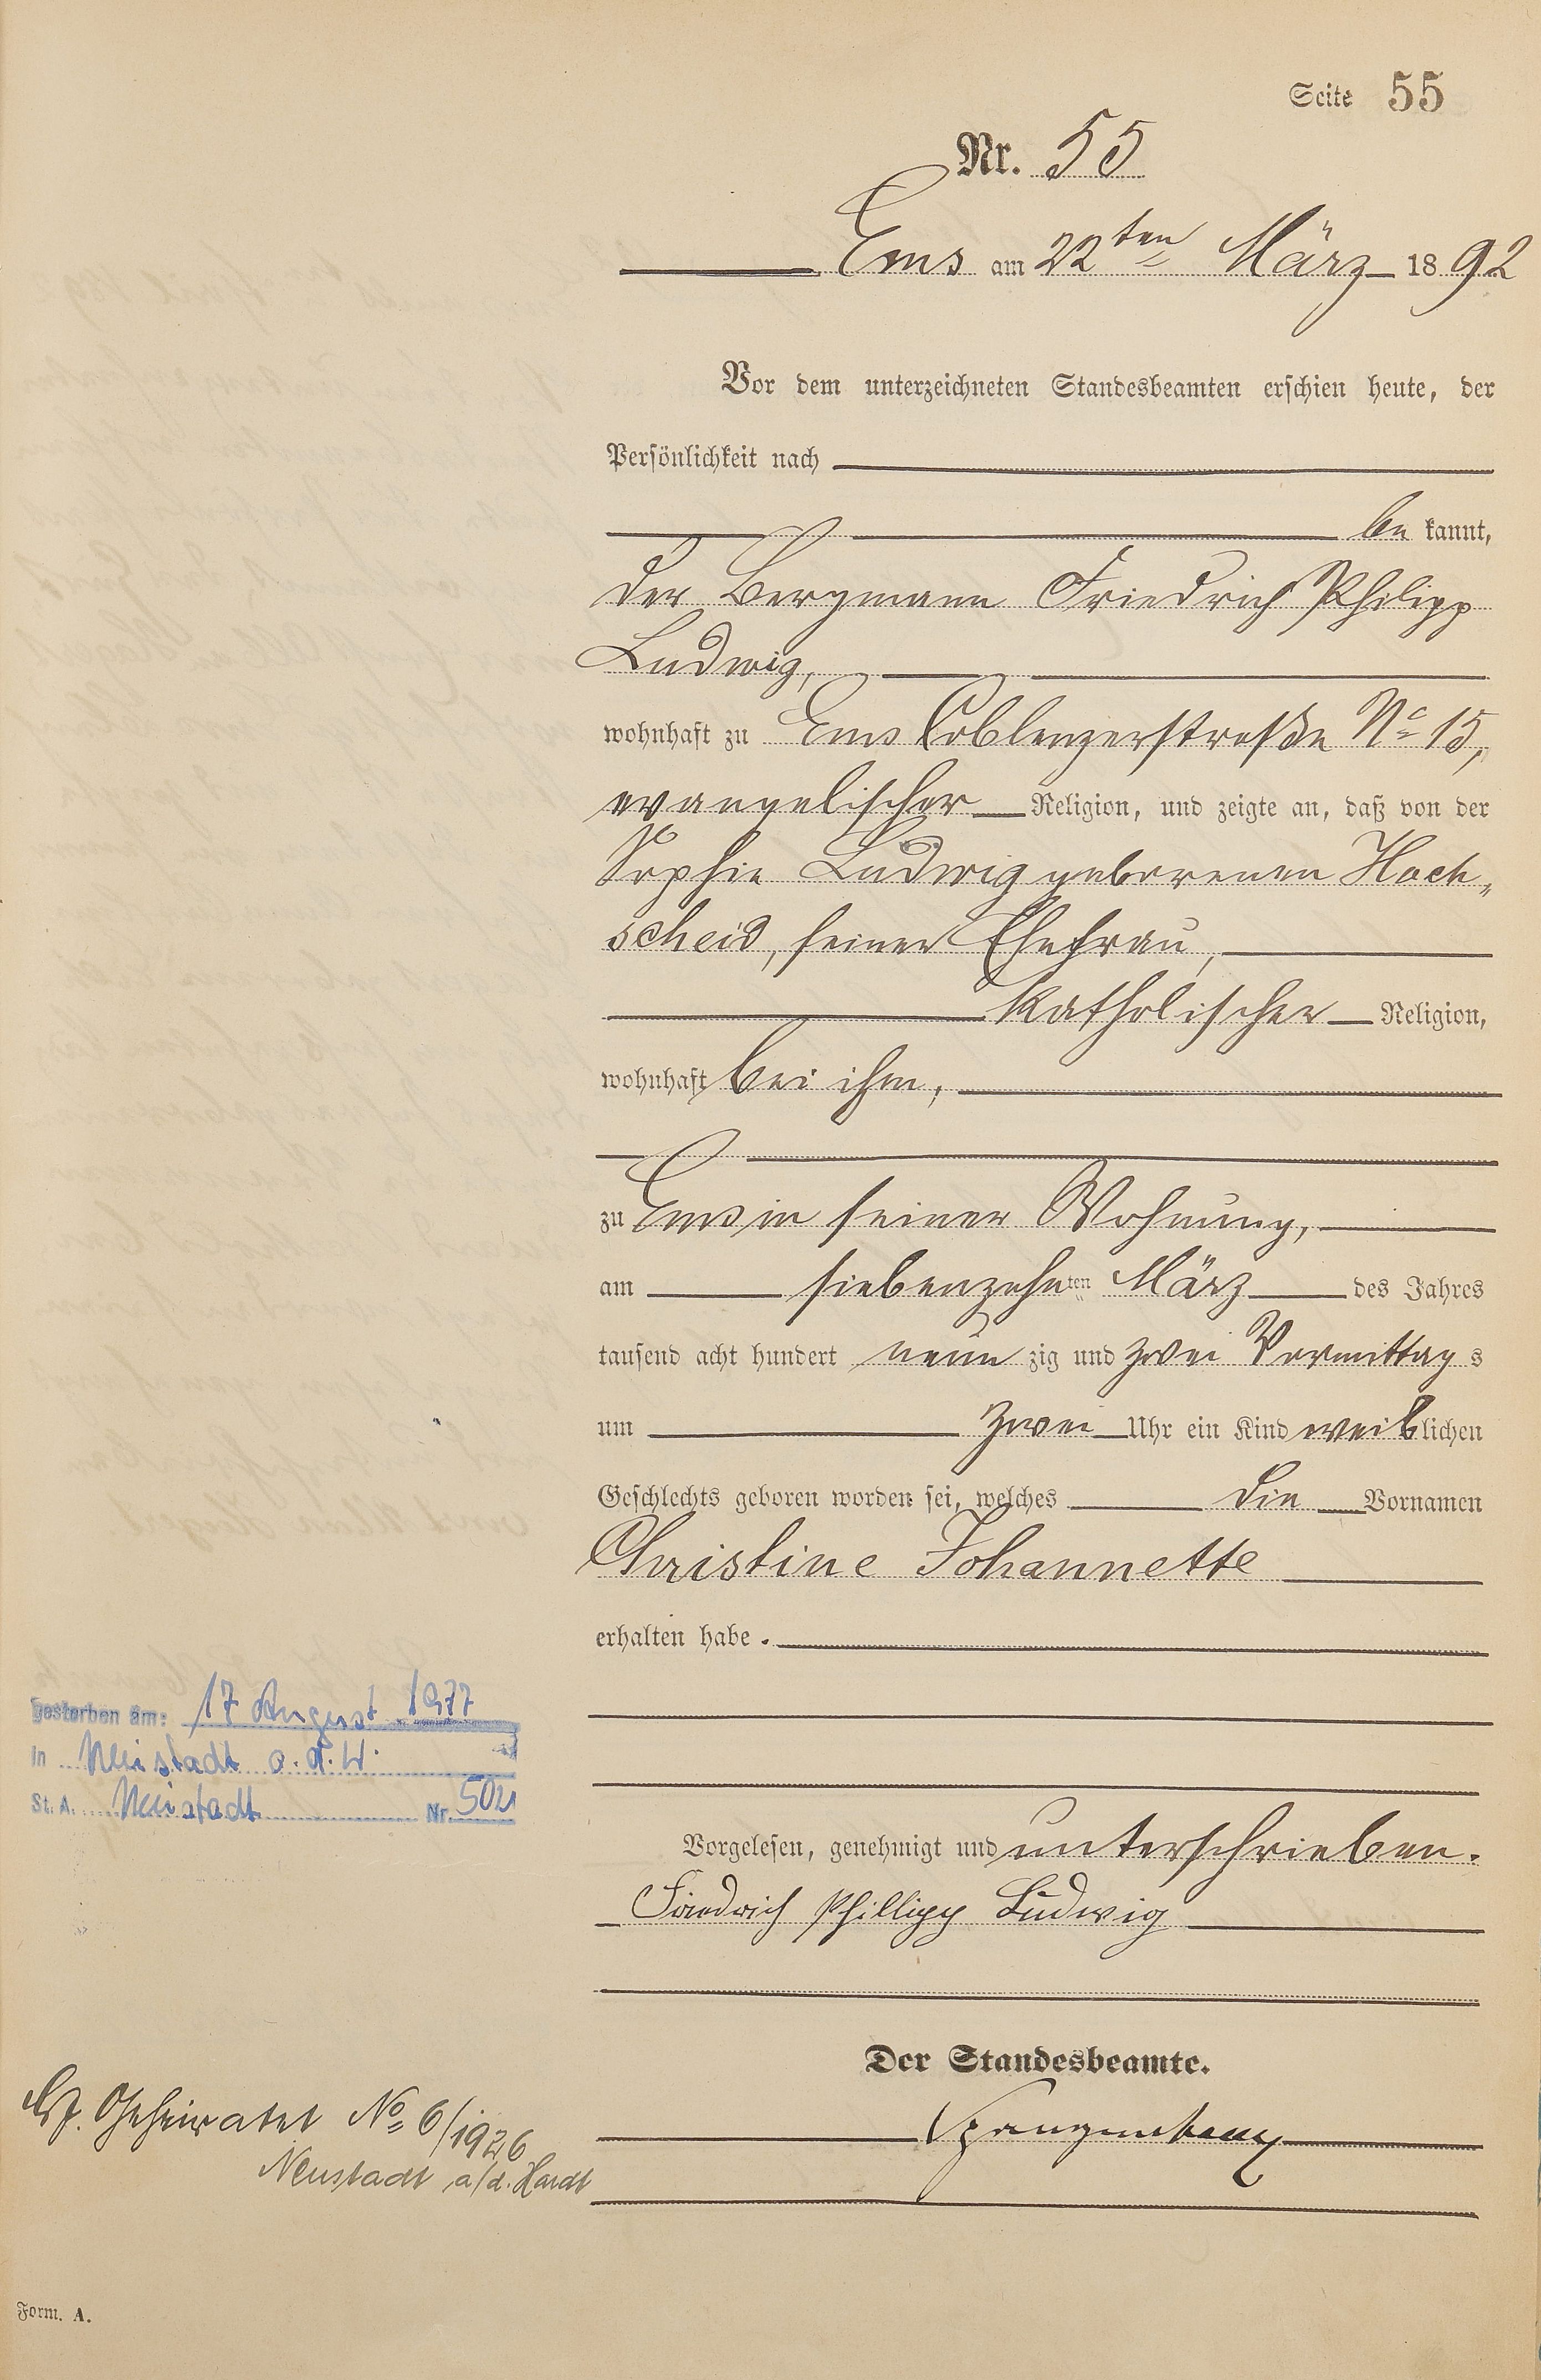 Seite 55
Nr. 55
Ems am 22ten März 1892
Vor dem unterzeichneten Standesbeamten erschien heute, der
Persönlichkeit nach
be kannt,
der Bergmann Friedrich Philipp
Ludwig,
wohnhaft zu Ems Coblenzerstraße No 15,
evangelischer Religion, und zeigte an, daß von der
Sophie Ludwig geborenen Hoch„
scheid, seiner Ehefrau,
katholischer Religion,
wohnhaft bei ihm,
zu Ems in seiner Wohnung,
am siebenzehnten März des Jahres
tausend acht hundert neun zig und zwei Vormittag s
um zwei Uhr ein Kind weiblichen
Geschlechts geboren worden sei, welches die Vornamen
Christine Johannette
erhalten habe.
gestorben am: 17 August 1977
in Neustadt a.d.W.
St. A. Neustadt Nr. 502
Vorgelesen, genehmigt und unterschrieben.
Friedrich Phillipp Ludwig
Der Standesbeamte.
Spangenberg
Geheiratet No 6/1926
Neustadt a/d. Hardt
Form. A.